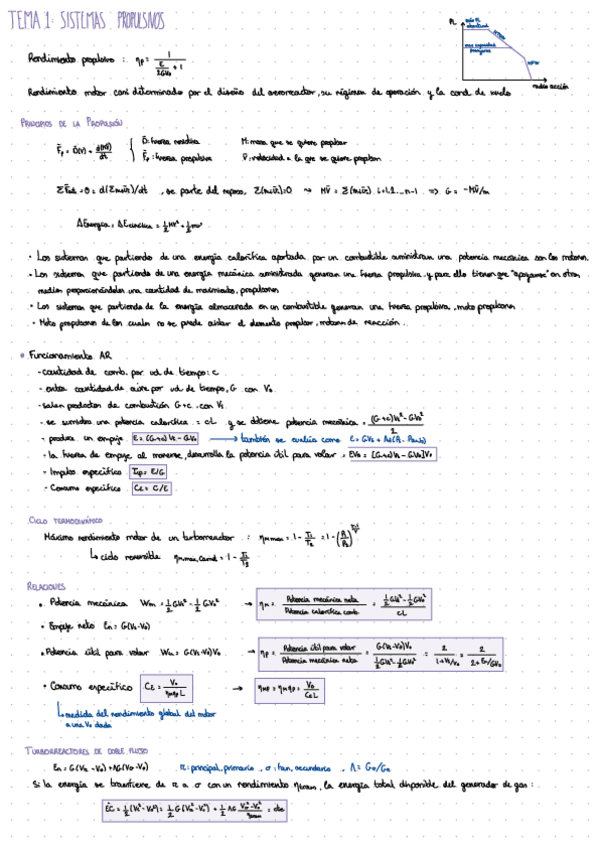 TEMA 1: SISTEMAS PROPULSIVOS
PL
máx PL
MTOW
MFW
radio acción
Rendimiento propulsivo : ηp = 1 / (E/2GV₀ + 1)
Rendimiento motor casi determinado por el diseño del aerorreactor, su régimen de operación y la cond. de vuelo
PRINCIPIOS DE LA PROPULSIÓN
D̄: fuerza resistiva M: masa que se quiere propulsar
F̄p = D̄(V) + d(MV̄)/dt
F̄p: fuerza propulsiva V̄: velocidad a la que se quiere propulsar
, se parte del reposo,
ΔEnergía = ΔEcinética = ½MV² + ½mv²
• Los sistemas que partiendo de una energía calorífica aportada por un combustible suministran una potencia mecánica son los motores.
• Los sistemas que partiendo de una energía mecánica suministrada generan una fuerza propulsiva y para ello tienen que "apoyarse" en otros
medios proporcionándoles una cantidad de movimiento, propulsores
• Los sistemas que partiendo de la energía almacenada en un combustible generan una fuerza propulsiva, moto propulsores
• Moto propulsores de los cuales no se puede aislar el elemento propulsor, motores de reacción.
• Funcionamiento AR
- cantidad de comb. por ud. de tiempo: c
- entra cantidad de aire por ud. de tiempo, G con V₀
- salen productos de combustión G+c con Vs
- se suministra una potencia calorífica = cL y se obtiene potencia mecánica = ((G+c)Vs² - GV₀²)/2
- produce un empuje E = (G+c)Vs - GV₀ → también se evalúa como
- la fuerza de empuje al moverse, desarrolla la potencia útil para volar = EV₀ = [(G+c)Vs - GV₀]V₀
- Impulso específico Isp = E/G
- Consumo específico CE = C/E
CICLO TERMODINÁMICO
Máximo rendimiento motor de un turborreactor :
↳ ciclo reversible
RELACIONES
• Potencia mecánica Wm = ½GVs² - ½GV₀² → ηM = Potencia mecánica neta / Potencia calorífica comb. = (½GVs² - ½GV₀²) / cL
• Empuje neto En = G(Vs-V₀)
• Potencia útil para volar Wu = G(Vs-V₀)V₀ → ηp = Potencia útil para volar / Potencia mecánica neta = G(Vs-V₀)V₀ / (½GVs² - ½GV₀²) = 2 / (1+Vs/V₀) = 2 / (2+En/GV₀)
• Consumo específico CE = V₀ / ηMηpL → ηMP = ηMηp = V₀ / CEL
↳ medida del rendimiento global del motor
a una V₀ dada
TURBORREACTORES DE DOBLE FLUJO
π: principal, primario , σ: fan, secundario , Λ = Gσ/Gπ
Si la energía se transfiere de π a σ con un rendimiento ηtrans, la energía total disponible del generador de gas :